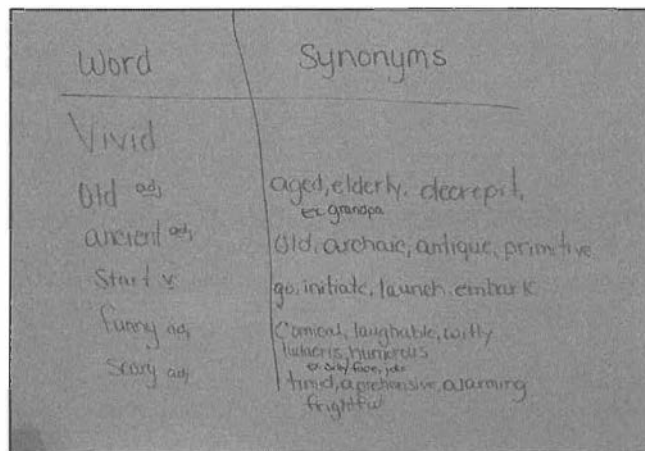 Word Synonyms
Vivid
Old adj aged, elderly, decrepit,
ex grandpa
ancient adj old, archaic, antique, primitive
Start v go, initiate, launch, embark
funny adj Comical, laughable, witty
ludacris, humerous
ex silly face, joke
Scary adj timid, aprehensive, alarming
frightful